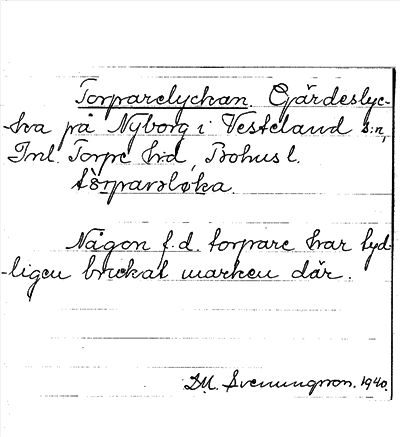 Torparelyckan. Gärdeslyc-
-ka på Nyborg i Västerland s:n,
Inl. Torpe hrd, Bohusl.
tòrparəløka.
Någon f.d. torpare har tyd-
-ligen brukat marken där.
D.M. Svenungsson. 1940.